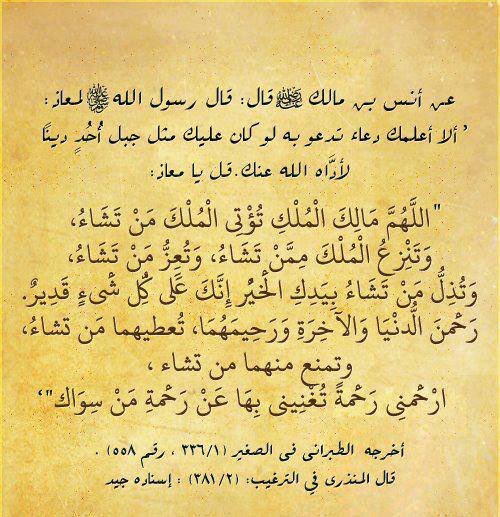 عن أنس بن مالك ﷺ قال: قال رسول الله ﷺ لمعاذ:
'ألا أعلمك دعاء تدعو به لو كان عليك مثل جبل أُحُدٍ دينًا
لأدَّاه الله عنك. قل يا معاذ:
"اللَّهُمَّ مَالِكَ الْمُلْكِ تُؤْتِى الْمُلْكَ مَنْ تَشَاءُ،
وَتَنْزِعُ الْمُلْكَ مِمَّنْ تَشَاءُ، وَتُعِزُّ مَنْ تَشَاءُ،
وَتُذِلُّ مَنْ تَشَاءُ بِيَدِكِ الْخَيْرُ إِنَّكَ عَلَى كُلِّ شَىْءٍ قَدِيرٌ.
رَحْمَنَ الدُّنْيَا وَالآخِرَةِ وَرَحِيمَهُمَا، تُعطيهما مَن تشاءُ،
وتمنع منهما من تشاء ،
ارْحَمْنِى رَحْمَةً تُغْنِينِى بِهَا عَنْ رَحْمَةِ مَنْ سِوَاكَ"'
أخرجه الطبرانى فى الصغير (٣٣٦/١ ، رقم ٥٥٨) .
قال المنذرى في الترغيب: (٣٨١/٢) : إسناده جيد